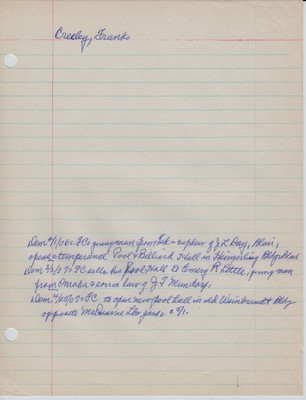 Creeley, Frank
Dem 4/1/06: FC, young man from Tek + nephew of J L Day, Blair,
opens a temperance Pool + Billiard Hall in Bldg Blair
Dem 2/21/07: FC sells his Pool Hall to Emery R Little, young man
from Omaha + son in law of J T Mundorf.
Dem 4/25/07: FC to open new pool hall in old Weinbrandt Bldg
opposite McQuarrie Lbr yards 5/1.